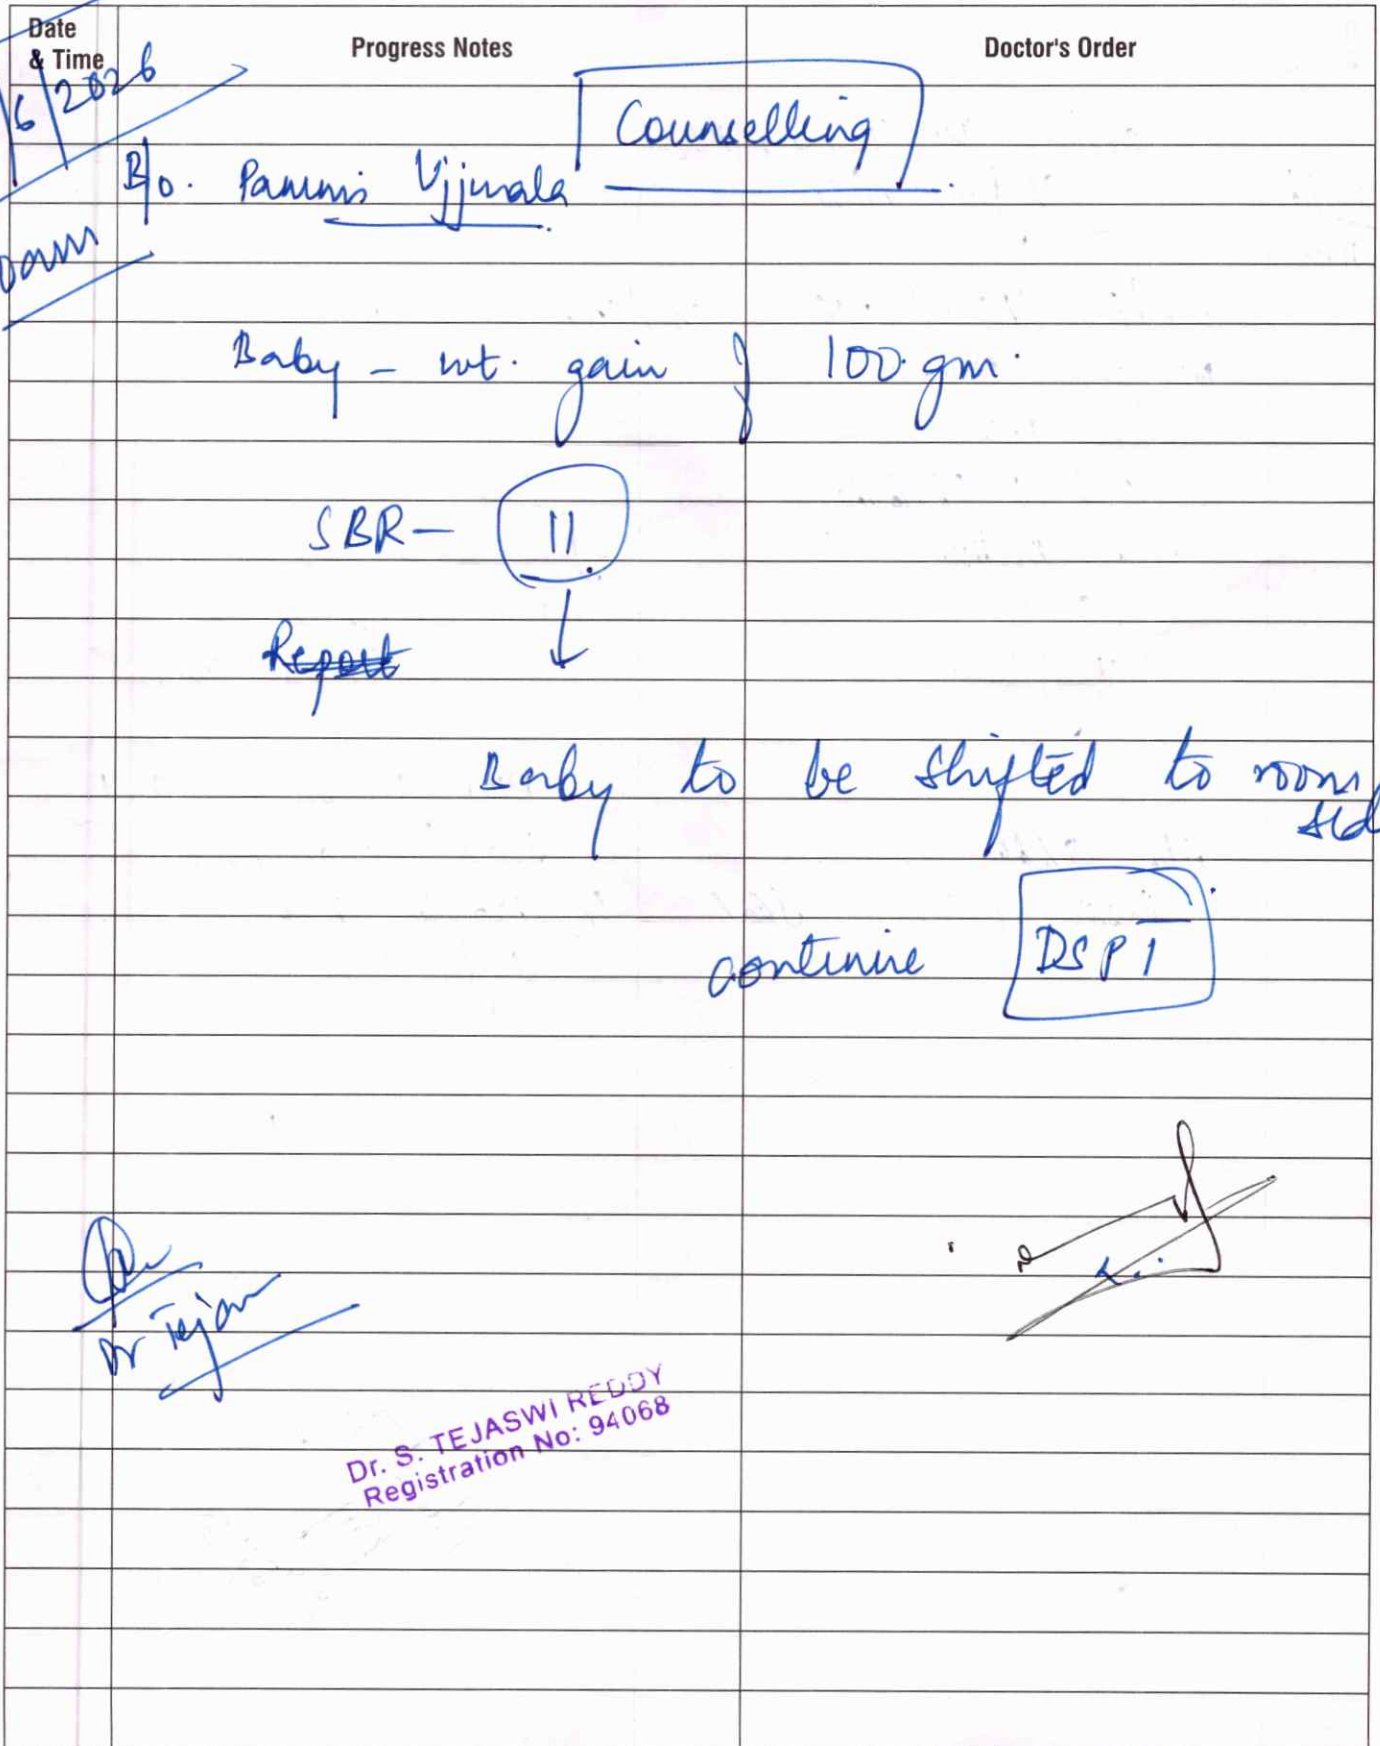 Date & Time
Progress Notes
Doctor's Order
6/2026
Counselling
B/o. Pammi Ujjwala
Baby - wt. gain of 100 gm.
SBR - 11
Report
Baby to be shifted to room
continue DSPT
Dr Teja
Dr. S. TEJASWI REDDY
Registration No: 94068